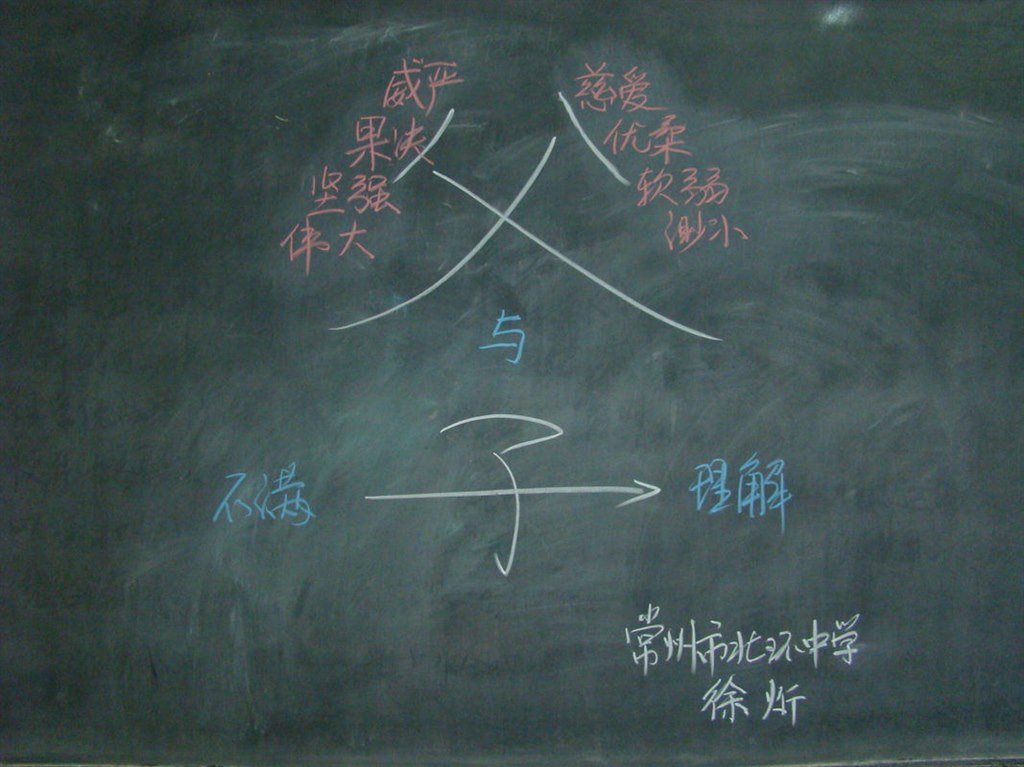 威严 慈爱
果决 优柔
坚强 软弱
伟大 渺小
父
与
子
不满 理解
常州市北环中学
徐炘